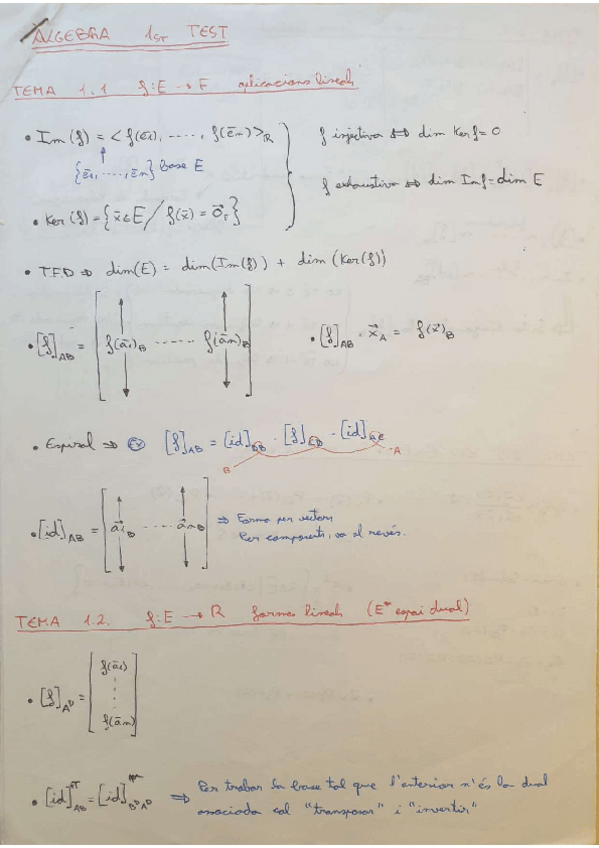 ALGEBRA 1ST TEST
TEMA 1.1 f: E → F aplicacions lineals
• Im(f) = < f(ē₁), ....., f(ēn) >ℝ
{ē₁, ...., ēn} base E
f injectiva ⇔ dim Ker f = 0
f exhaustiva ⇔ dim Im f = dim E
• Ker(f) = {x̄ ∈ E / f(x̄) = 0⃗F}
• T.F.D ⇒ dim(E) = dim(Im(f)) + dim(Ker(f))
• [f]AB = [f(ā₁)B ...... f(ān)B]
• [f]AB · x⃗A = f(x⃗)B
• Espiral ⇒ Ex [f]AB = [id]DB · [f]CD · [id]AC
B A
• [id]AB = [ā₁B ...... ānB] ⇒ Forma per vectors
Per components, va al revés.
TEMA 1.2. f: E → R formes lineals (E* espai dual)
• [f]Aᴰ = [f(ā₁) ... f(ān)]
• [id]ᵀAB = [id]BᴰAᴰ ⇒ Per trobar la base tal que l'anterior n'és la dual
associada cal "transposar" i "invertir"